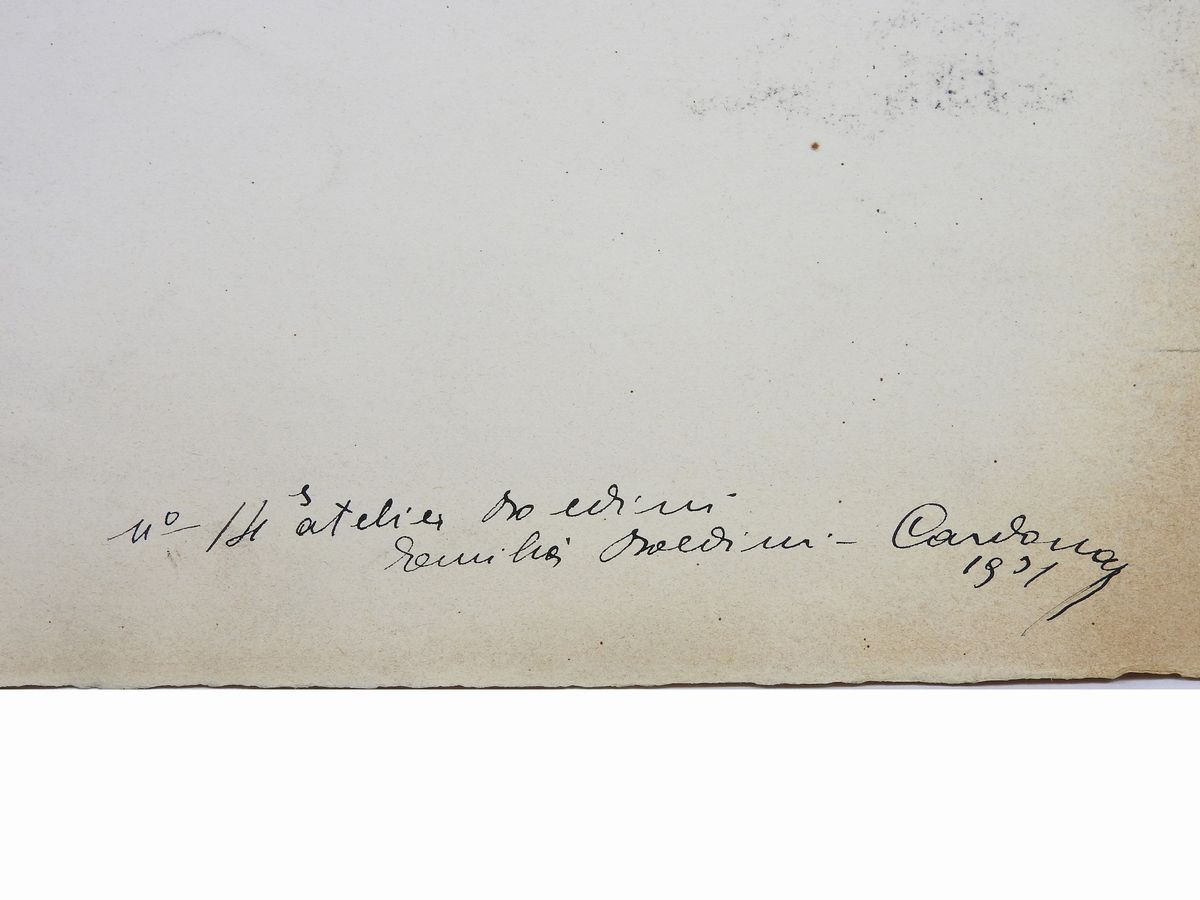 nº 14 atelier Boldini
Emilia Boldini - Cardona
1931